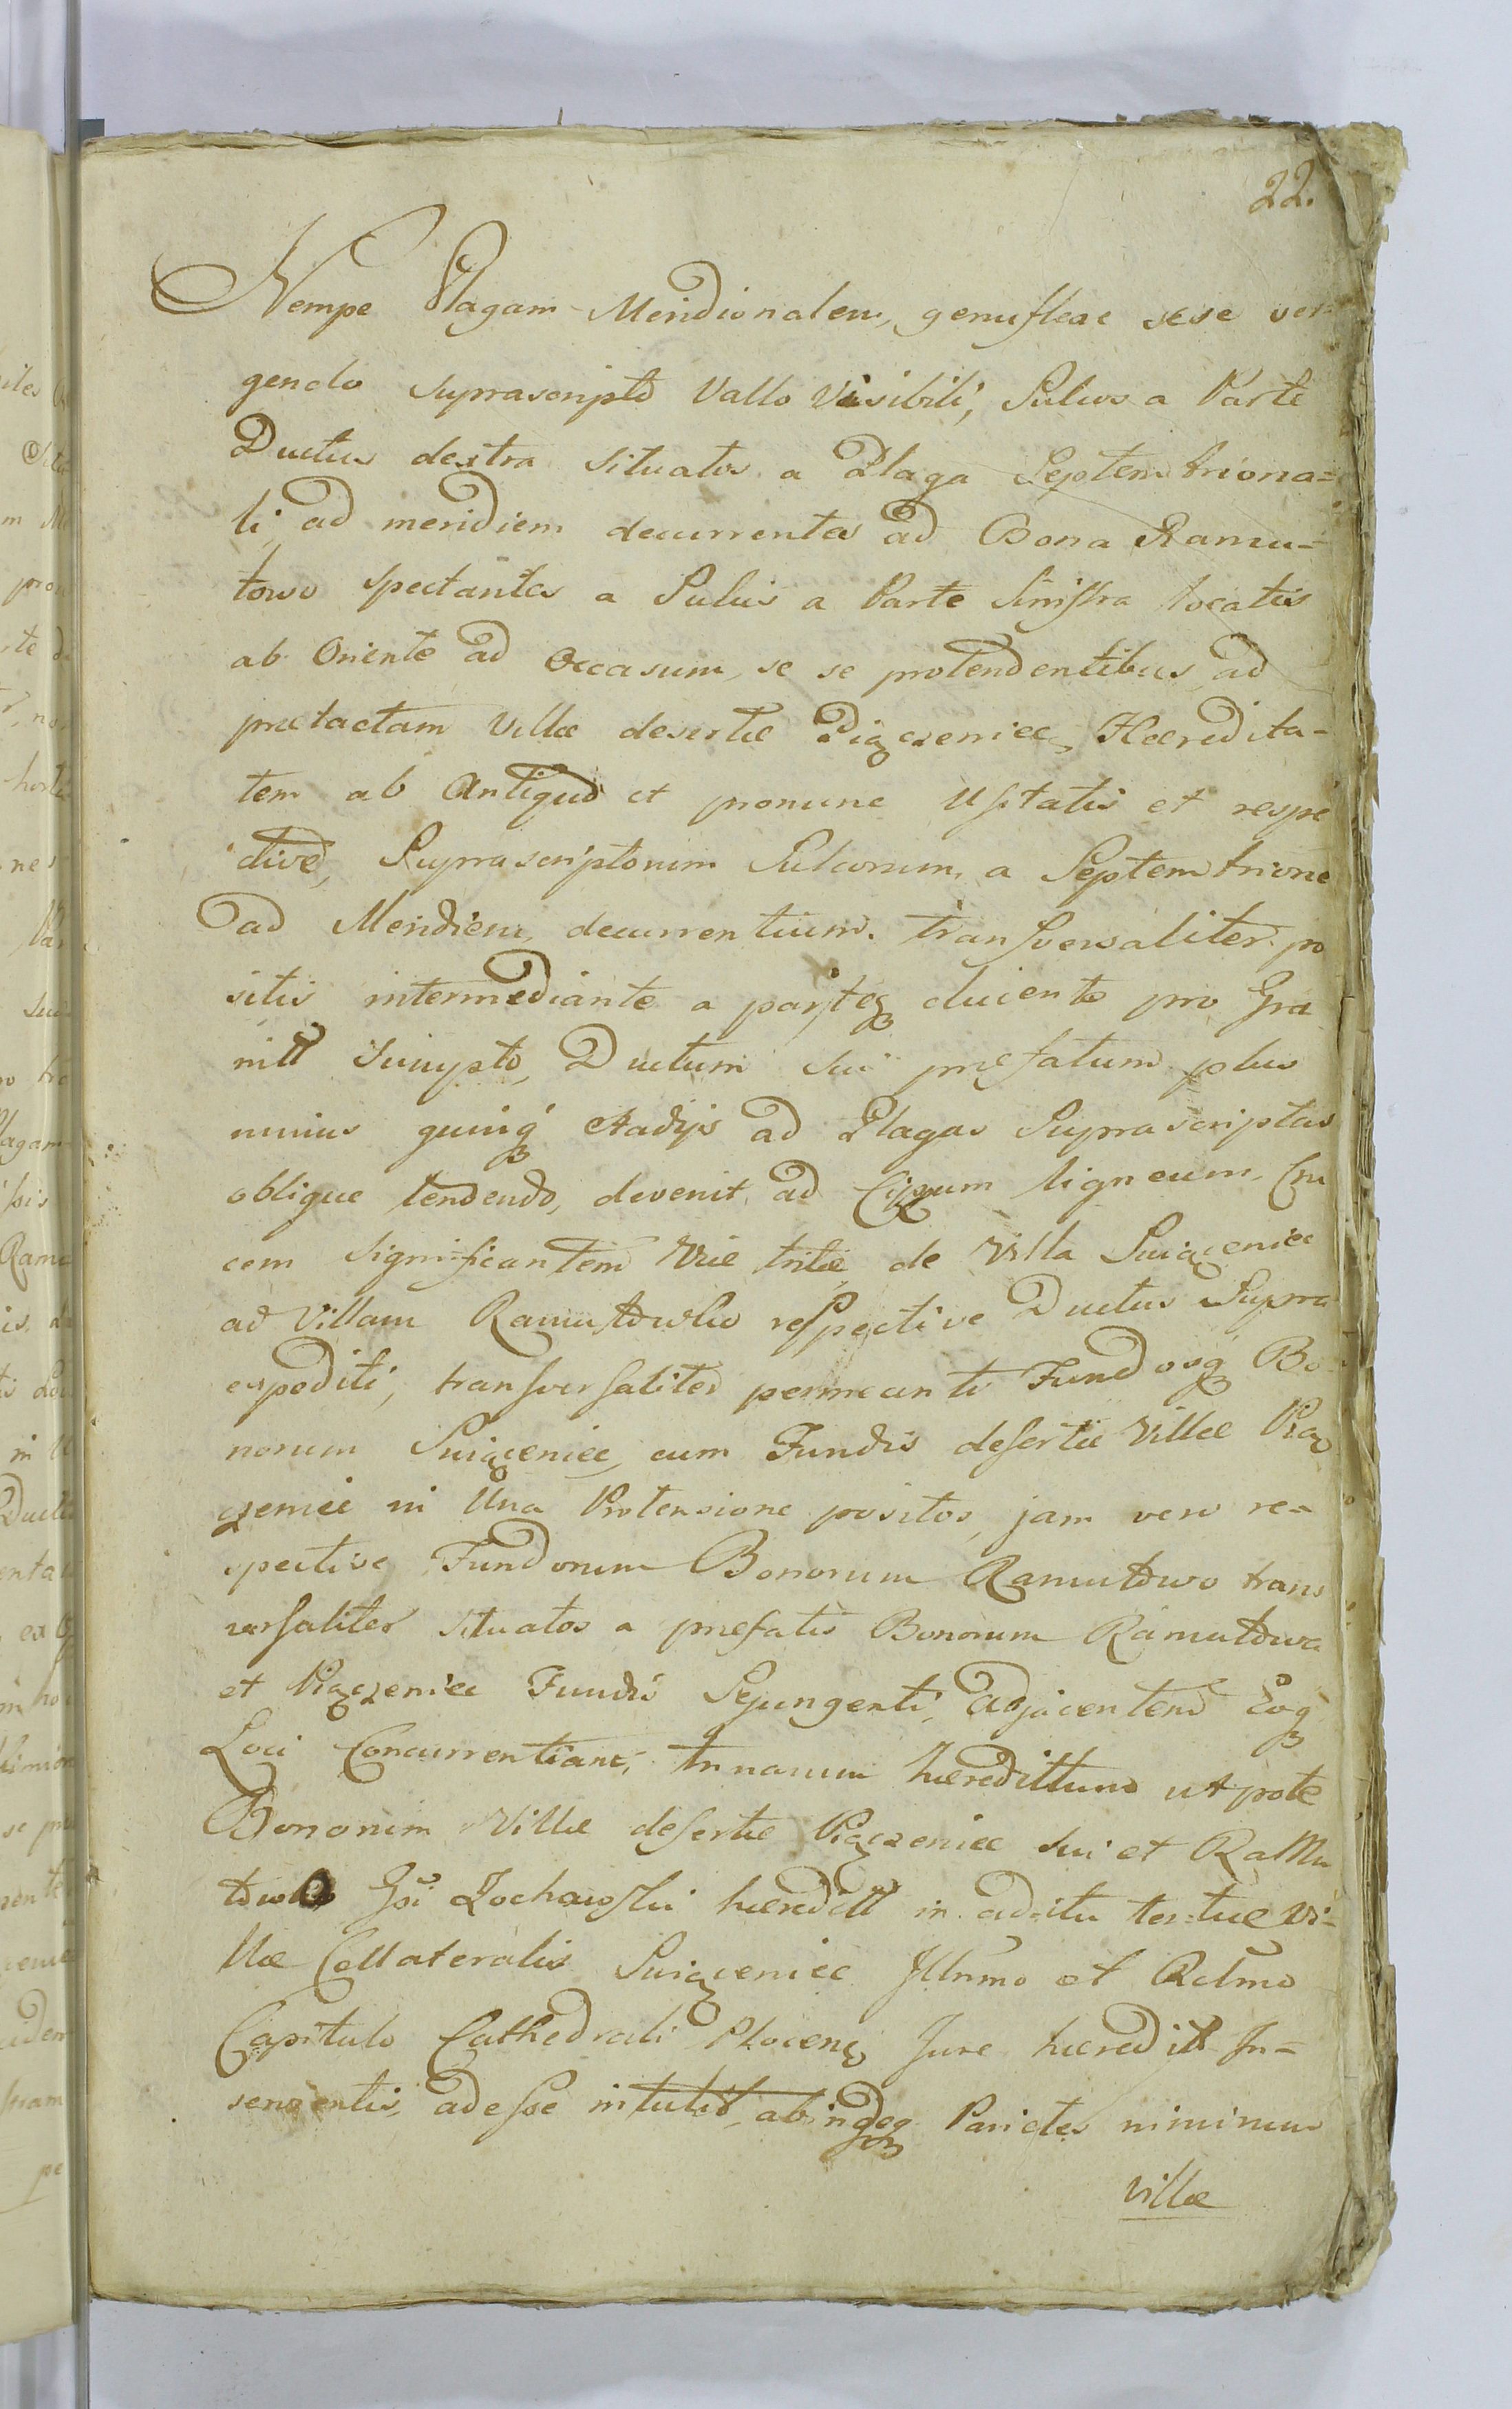 22.
Nempe Plagam Meridionalem, genuflexe sese ver=
gendo suprascripto Vallo Visibili, Sulcos a Parte
Ductus dextra situatos a Plaga Septemtriona=
li ad meridiem decurrentes ad Bona Ramu=
towo spectantes a Sulcis a Parte Sinistra locatis
ab Oriente ad Occasum se se protendentibus ad
prætactam Villæ desertæ Piączeniec Hæredita=
tem ab Antiquo et pronunc Usitatis et respe
ctive, Suprascriptorum Sulcorum, a Septemtrione
ad Meridiem decurrentium transversaliter po
sitis intermediante a parteq ducente pro Gra
nitt Sumpto, Ductum sui præfatum plus
minus quinq stadijs ad Plagas Suprascriptas
oblique tendendo, devenit ad Cippum ligneum, Cru
cem significantem Viæ tritæ de Villa Swięceniec
ad Villam Ramutowko respective Ductus Supra
expediti, transversaliter permeanti Fundosq Bo=
norum Swięceniec, cum Fundis desertæ Villæ Pią
czeniec in Una Protensione positos, jam vero re=
spective Fundorum Bonorum Ramutowo trans
versaliter situatos a præfatis Bonorum Ramutowo
et Piączeniec Fundis Sejungenti, adjacentem Eoq
Loci Concurrentiam, trinarum hæreditum utpote
Bonorum Villæ desertæ Piączeniec sui et Ramu
towko Gsi Zochowski hæreditt in aditu tertiæ Vi=
llæ Collateralis Swięceniec Illrmo et Rdmo
Capitulo Cathedrali Plocen Jure hæreditt In=
servientis, adesse intulit, abindeq Parietes nimirum
Villæ